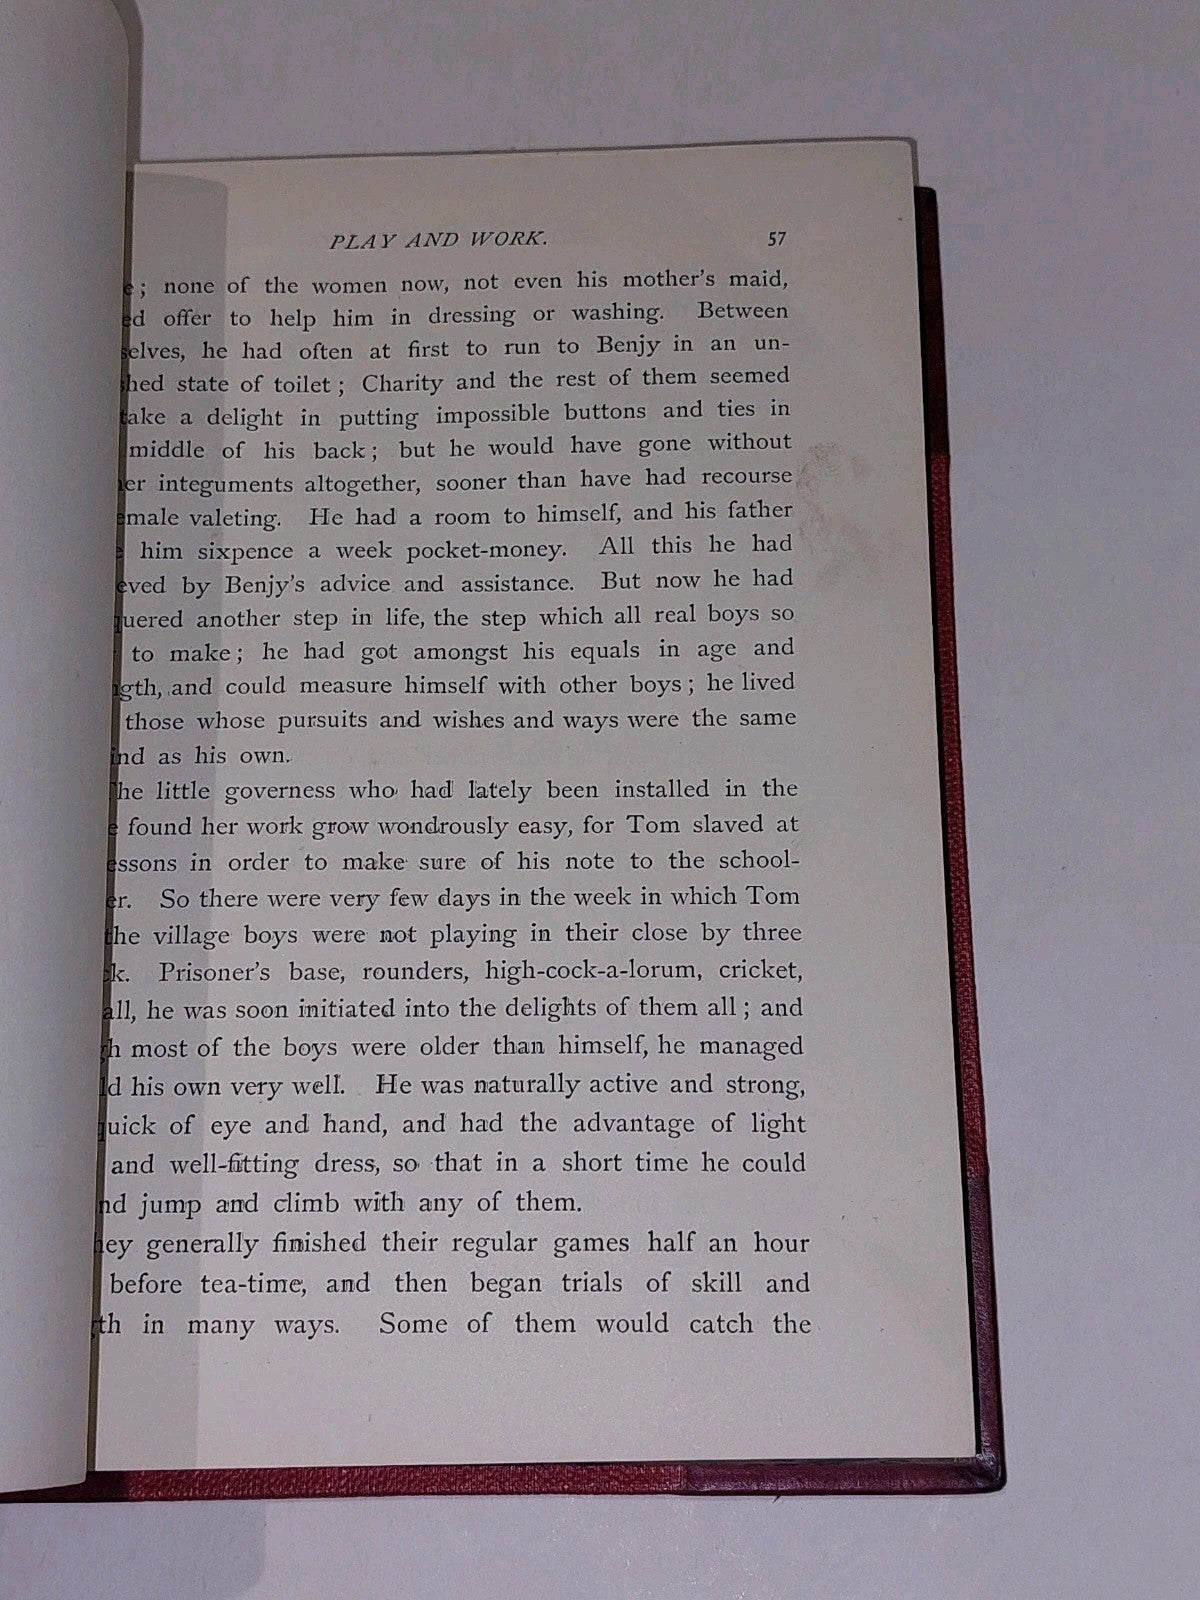 PLAY AND WORK. 57
e; none of the women now, not even his mother's maid,
ed offer to help him in dressing or washing. Between
selves, he had often at first to run to Benjy in an un-
hed state of toilet; Charity and the rest of them seemed
take a delight in putting impossible buttons and ties in
middle of his back; but he would have gone without
er integuments altogether, sooner than have had recourse
emale valeting. He had a room to himself, and his father
e him sixpence a week pocket-money. All this he had
eved by Benjy's advice and assistance. But now he had
quered another step in life, the step which all real boys so
to make; he had got amongst his equals in age and
ngth, and could measure himself with other boys; he lived
those whose pursuits and wishes and ways were the same
ind as his own.
The little governess who had lately been installed in the
e found her work grow wondrously easy, for Tom slaved at
essons in order to make sure of his note to the school-
er. So there were very few days in the week in which Tom
the village boys were not playing in their close by three
ck. Prisoner's base, rounders, high-cock-a-lorum, cricket,
all, he was soon initiated into the delights of them all; and
gh most of the boys were older than himself, he managed
ld his own very well. He was naturally active and strong,
quick of eye and hand, and had the advantage of light
and well-fitting dress, so that in a short time he could
nd jump and climb with any of them.
hey generally finished their regular games half an hour
before tea-time, and then began trials of skill and
gth in many ways. Some of them would catch the